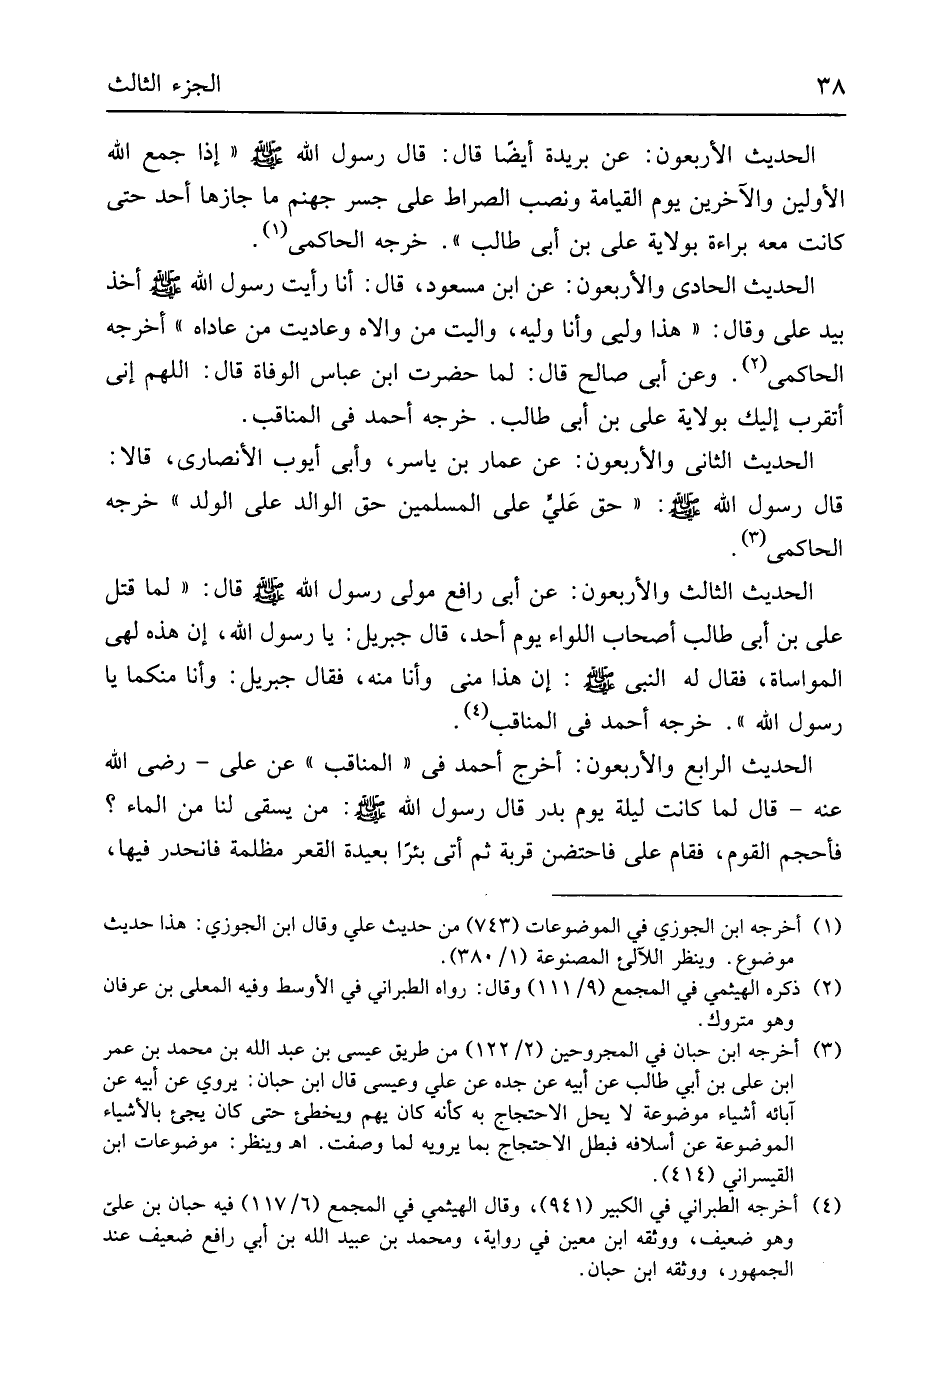 ٣٨ الجزء الثالث
الحديث الأربعون: عن بريدة أيضًا قال: قال رسول الله ﷺ « إذا جمع الله
الأولين والآخرين يوم القيامة ونصب الصراط على جسر جهنم ما جازها أحد حتى
كانت معه براءة بولاية على بن أبى طالب ». خرجه الحاكمى(١).
الحديث الحادى والأربعون: عن ابن مسعود، قال: أنا رأيت رسول الله ﷺ أخذ
بيد على وقال: « هذا وليى وأنا وليه، واليت من والاه وعاديت من عاداه » أخرجه
الحاكمى(٢). وعن أبى صالح قال: لما حضرت ابن عباس الوفاة قال: اللهم إنى
أتقرب إليك بولاية على بن أبى طالب. خرجه أحمد فى المناقب.
الحديث الثانى والأربعون: عن عمار بن ياسر، وأبى أيوب الأنصارى، قالا:
قال رسول الله ﷺ: « حق عَليٍّ على المسلمين حق الوالد على الولد » خرجه
الحاكمى(٣).
الحديث الثالث والأربعون: عن أبى رافع مولى رسول الله ﷺ قال: « لما قتل
على بن أبى طالب أصحاب اللواء يوم أحد، قال جبريل: يا رسول الله، إن هذه لهى
المواساة، فقال له النبى ﷺ : إن هذا منى وأنا منه، فقال جبريل: وأنا منكما يا
رسول الله ». خرجه أحمد فى المناقب(٤).
الحديث الرابع والأربعون: أخرج أحمد فى « المناقب » عن على – رضى الله
عنه – قال لما كانت ليلة يوم بدر قال رسول الله ﷺ: من يسقى لنا من الماء ؟
فأحجم القوم، فقام على فاحتضن قربة ثم أتى بئرًا بعيدة القعر مظلمة فانحدر فيها،
(١) أخرجه ابن الجوزي في الموضوعات (٧٤٣) من حديث علي وقال ابن الجوزي: هذا حديث
موضوع. وينظر اللآلئ المصنوعة (١/ ٣٨٠).
(٢) ذكره الهيثمي في المجمع (٩/ ١١١) وقال: رواه الطبراني في الأوسط وفيه المعلى بن عرفان
وهو متروك.
(٣) أخرجه ابن حبان في المجروحين (٢/ ١٢٢) من طريق عيسى بن عبد الله بن محمد بن عمر
ابن على بن أبي طالب عن أبيه عن جده عن علي وعيسى قال ابن حبان: يروي عن أبيه عن
آبائه أشياء موضوعة لا يحل الاحتجاج به كأنه كان يهم ويخطئ حتى كان يجئ بالأشياء
الموضوعة عن أسلافه فبطل الاحتجاج بما يرويه لما وصفت. اهـ وينظر: موضوعات ابن
القيسراني (٤١٤).
(٤) أخرجه الطبراني في الكبير (٩٤١)، وقال الهيثمي في المجمع (٦/ ١١٧) فيه حبان بن عليّ
وهو ضعيف، ووثقه ابن معين في رواية، ومحمد بن عبيد الله بن أبي رافع ضعيف عند
الجمهور، ووثقه ابن حبان.